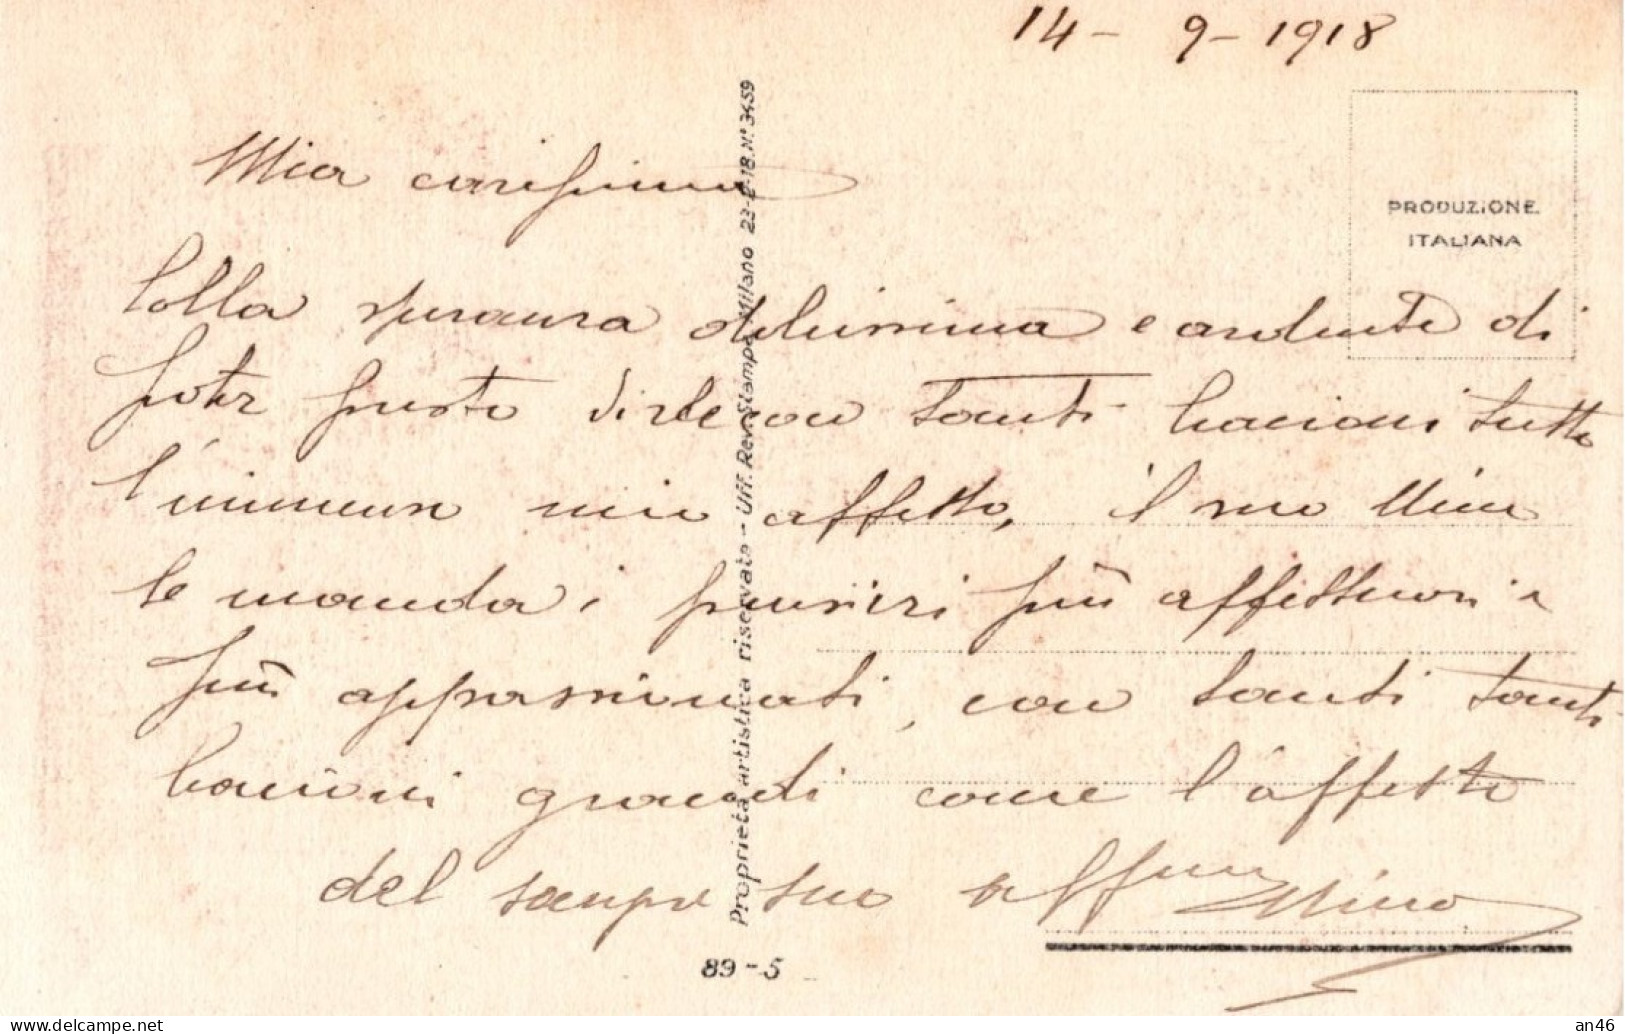 14 - 9 - 1918
PRODUZIONE
ITALIANA
Mia carissima
Colla speranza dolcissima e ardente di
poter presto dirle con tanti bacioni tutto
l'immenso mio affetto, il suo Mino
le manda i pensieri più affettuosi e
più appassionati, con tanti tanti
bacioni grandi come l'affetto
del sempre suo aff.mo Mino
Proprietà artistica riservata - Uff. Rev. Stampe Milano 23-2-18. N° 3459
89 - 5
www.delcampe.net
an46